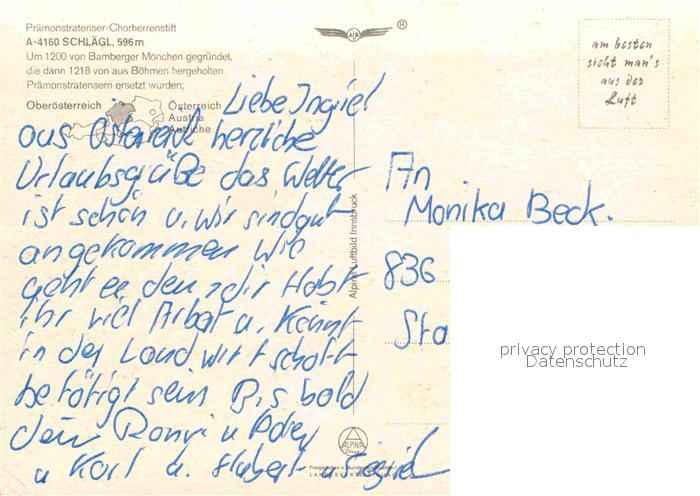 Prämonstratenser-Chorherrenstift
A-4160 SCHLÄGL, 596m
Um 1200 von Bamberger Mönchen gegründet,
die dann 1218 von aus Böhmen hergeholten
Prämonstratensern ersetzt wurden;
Oberösterreich
Österreich
Austria
Autriche
®
am besten
sieht man's
aus der
Luft
Liebe
aus Österreich herzliche
Urlaubsgrüße das Wetter
ist schön u. wir sind gut
angekommen Wie
geht es den dir Habt
ihr viel Arbeit u. Könnt
in der Landwirtschaft
betätigt sein Bis bald
dein u
u Karl u. Hubert
Alpine Luftbild Innsbruck
An
Monika Beck.
836
Sta
privacy protection
Datenschutz
ALPINE